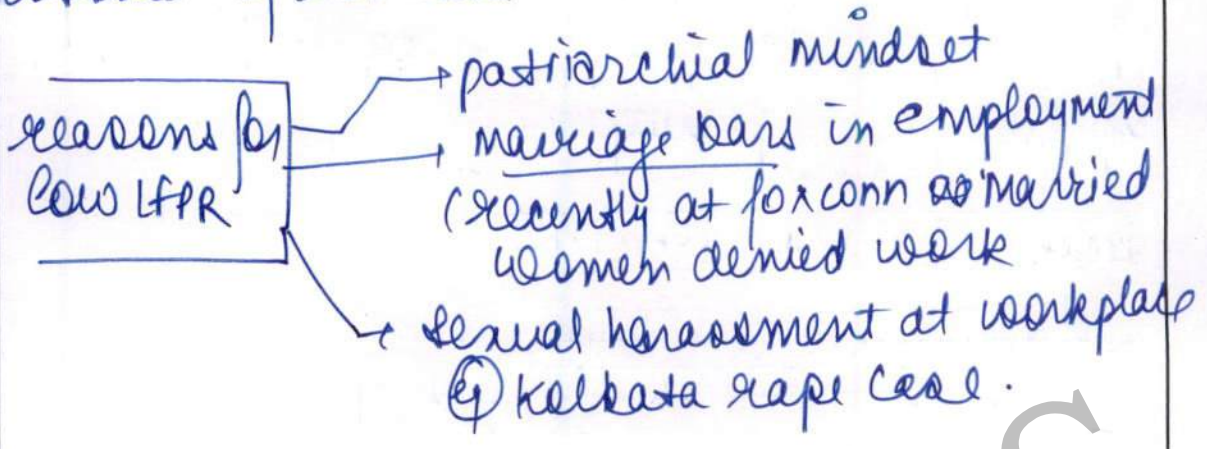 reasons for
low LFPR
patriarchial mindset
marriage bars in employment
(recently at foxconn as married
women denied work
sexual harassment at workplace
eg Kolkata rape case.